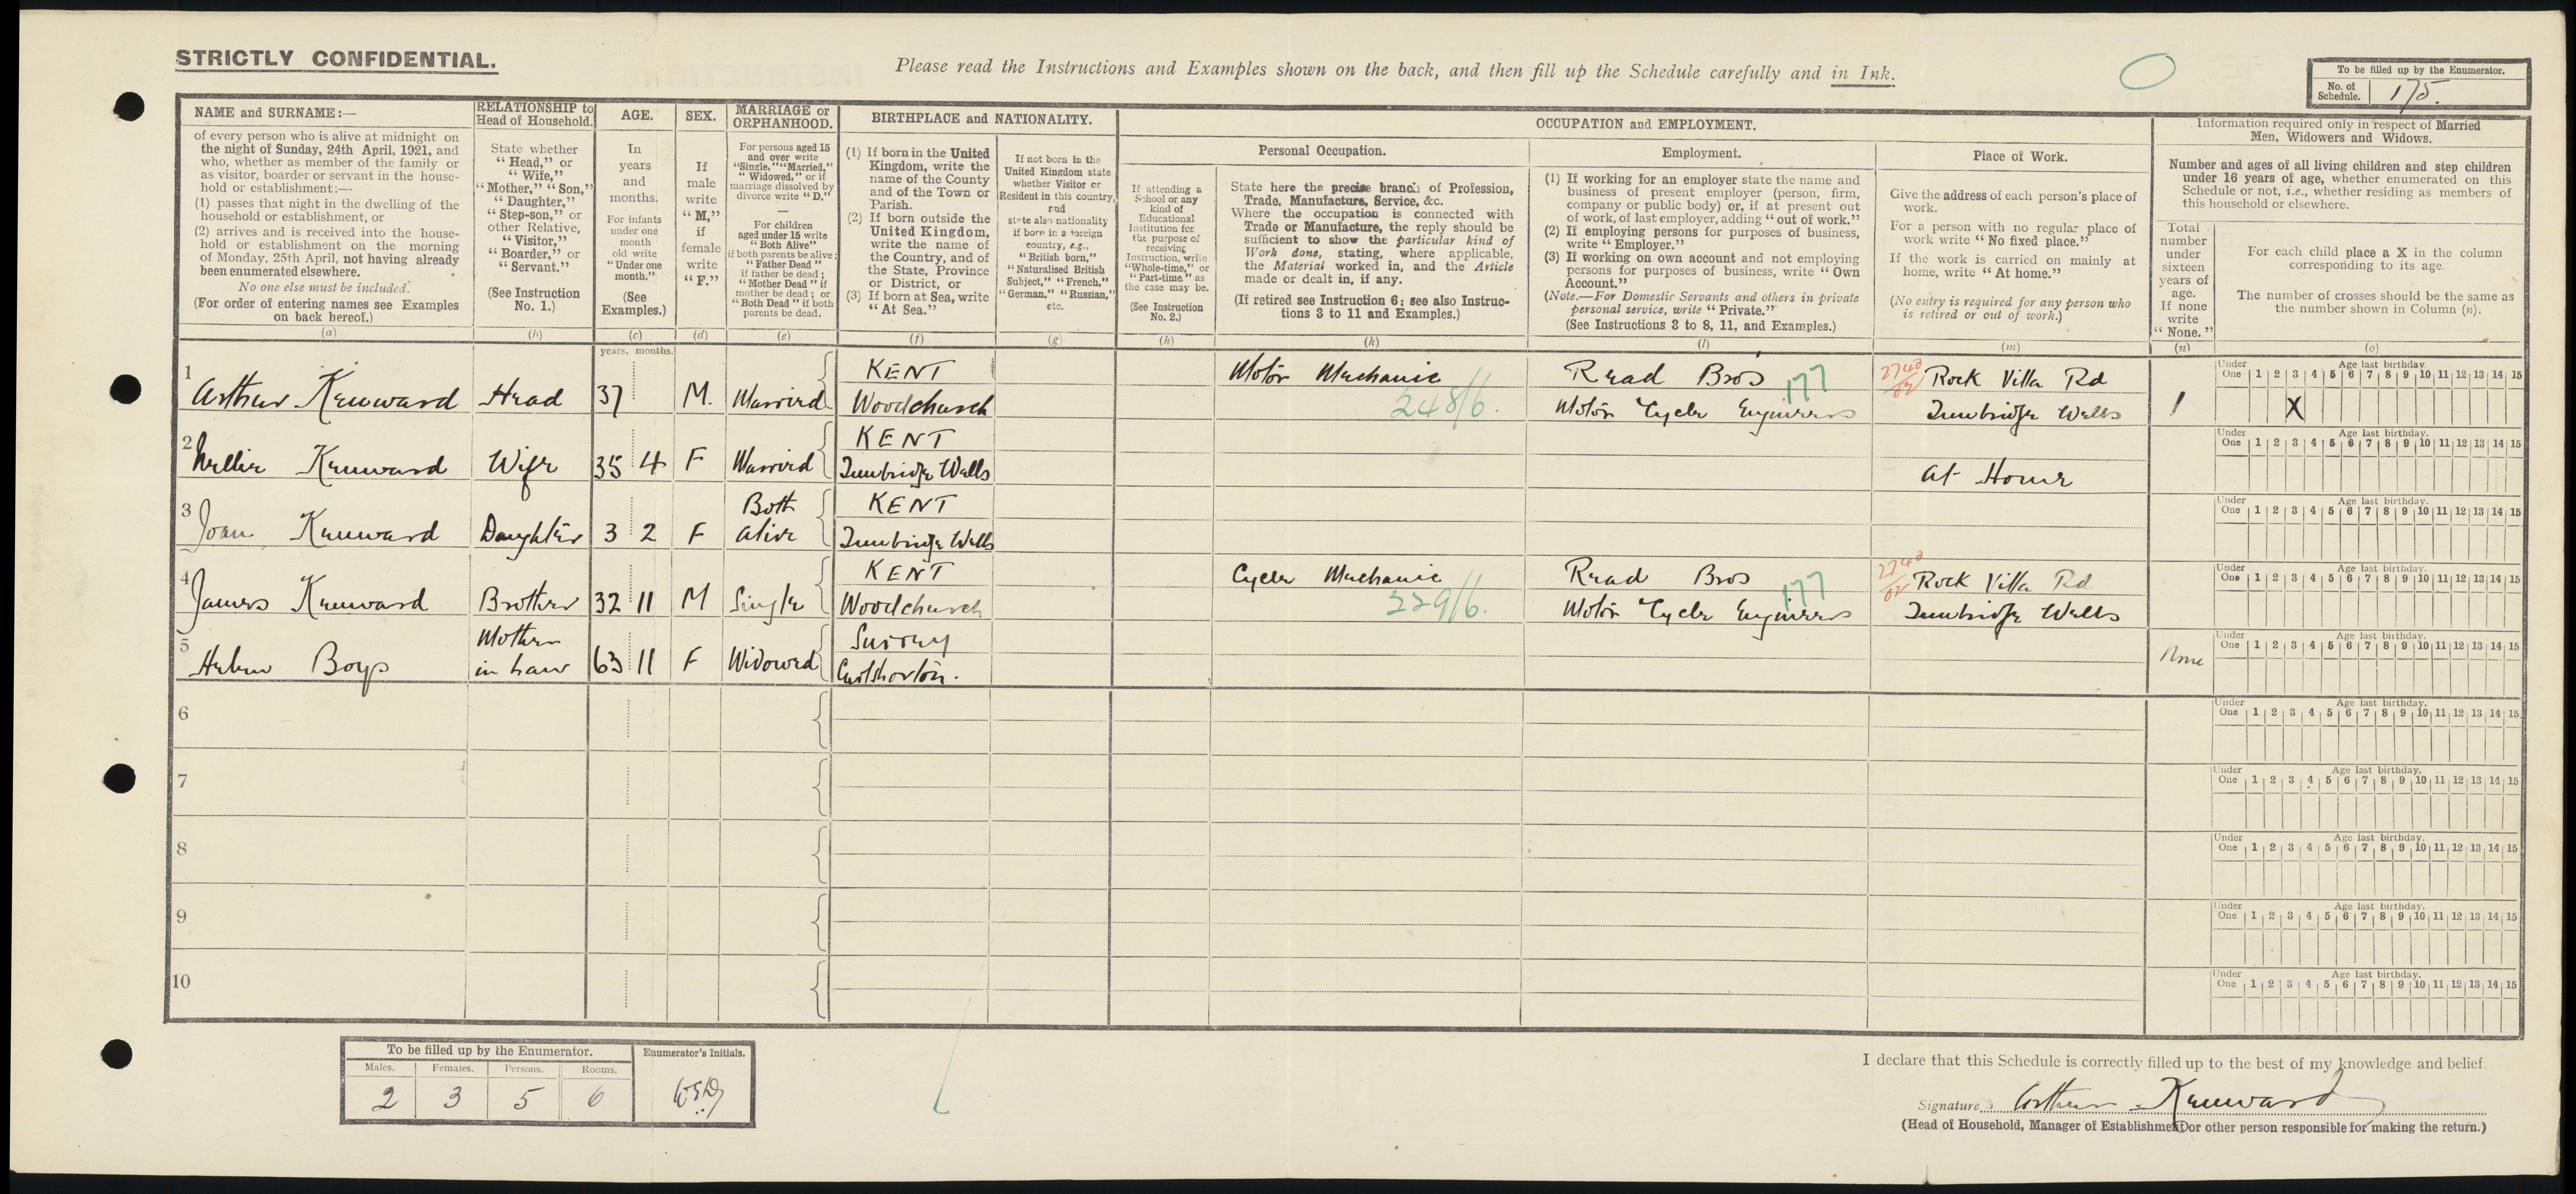 STRICTLY CONFIDENTIAL.
Please read the Instructions and Examples shown on the back, and then fill up the Schedule carefully and in Ink.
To be filled up by the Enumerator.
No. of Schedule. 175.
NAME and SURNAME:—
of every person who is alive at midnight on
the night of Sunday, 24th April, 1921, and
who, whether as member of the family or
as visitor, boarder or servant in the house-
hold or establishment:—
(1) passes that night in the dwelling of the
household or establishment, or
(2) arrives and is received into the house-
hold or establishment on the morning
of Monday, 25th April, not having already
been enumerated elsewhere.
No one else must be included.
(For order of entering names see Examples
on back hereof.)
(a)
RELATIONSHIP to
Head of Household.
State whether
"Head," or
"Wife,"
"Mother," "Son,"
"Daughter,"
"Step-son," or
other Relative,
"Visitor,"
"Boarder," or
"Servant."
(See Instruction
No. 1.)
(b)
AGE.
In
years
and
months.
For infants
under one
month
old write
"Under one
month."
(See
Examples.)
(c)
SEX.
If
male
write
"M,"
if
female
write
"F."
(d)
MARRIAGE or
ORPHANHOOD.
For persons aged 15
and over write
"Single," "Married,"
"Widowed," or if
marriage dissolved by
divorce write "D."
—
For children
aged under 15 write
"Both Alive"
if both parents be alive;
"Father Dead"
if father be dead;
"Mother Dead" if
mother be dead; or
"Both Dead" if both
parents be dead.
(e)
BIRTHPLACE and NATIONALITY.
(1) If born in the United
Kingdom, write the
name of the County
and of the Town or
Parish.
(2) If born outside the
United Kingdom,
write the name of
the Country, and of
the State, Province
or District, or
(3) If born at Sea, write
"At Sea."
(f)
If not born in the
United Kingdom state
whether Visitor or
Resident in this country,
and
state also nationality
if born in a foreign
country, e.g.,
"British born,"
"Naturalised British
Subject," "French,"
"German," "Russian,"
etc.
(g)
OCCUPATION and EMPLOYMENT.
Personal Occupation.
If attending a
School or any
kind of
Educational
Institution for
the purpose of
receiving
Instruction, write
"Whole-time," or
"Part-time," as
the case may be.
(See Instruction
No. 2.)
(h)
State here the precise branch of Profession,
Trade, Manufacture, Service, &c.
Where the occupation is connected with
Trade or Manufacture, the reply should be
sufficient to show the particular kind of
Work done, stating, where applicable,
the Material worked in, and the Article
made or dealt in, if any.
(If retired see Instruction 6; see also Instruc-
tions 3 to 11 and Examples.)
(k)
Employment.
(1) If working for an employer state the name and
business of present employer (person, firm,
company or public body) or, if at present out
of work, of last employer, adding "out of work."
(2) If employing persons for purposes of business,
write "Employer."
(3) If working on own account and not employing
persons for purposes of business, write "Own
Account."
(Note.—For Domestic Servants and others in private
personal service, write "Private.")
(See Instructions 3 to 8, 11, and Examples.)
(l)
Place of Work.
Give the address of each person's place of
work.
For a person with no regular place of
work write "No fixed place."
If the work is carried on mainly at
home, write "At home."
(No entry is required for any person who
is retired or out of work.)
(m)
Information required only in respect of Married
Men, Widowers and Widows.
Number and ages of all living children and step children
under 16 years of age, whether enumerated on this
Schedule or not, i.e., whether residing as members of
this household or elsewhere.
Total
number
under
sixteen
years of
age.
If none
write
"None."
(n)
For each child place a X in the column
corresponding to its age.
The number of crosses should be the same as
the number shown in Column (n).
(o)
years. months.
Under One Age last birthday. 1 2 3 4 5 6 7 8 9 10 11 12 13 14 15
1 Arthur Kenward Head 37 M. Married KENT Woodchurch Motor Mechanic 248/6. Read Bros 177 Motor Cycle Engineers Rock Villa Rd Tunbridge Wells 1 X
Under One Age last birthday. 1 2 3 4 5 6 7 8 9 10 11 12 13 14 15
2 Nellie Kenward Wife 35 4 F Married KENT Tunbridge Wells At Home
Under One Age last birthday. 1 2 3 4 5 6 7 8 9 10 11 12 13 14 15
3 Joan Kenward Daughter 3 2 F Both Alive KENT Tunbridge Wells
Under One Age last birthday. 1 2 3 4 5 6 7 8 9 10 11 12 13 14 15
4 James Kenward Brother 32 11 M Single KENT Woodchurch Cycle Mechanic 229/6. Read Bros 177 Motor Cycle Engineers Rock Villa Rd Tunbridge Wells
Under One Age last birthday. 1 2 3 4 5 6 7 8 9 10 11 12 13 14 15
5 Boys Mother in Law 63 11 F Widowed Surrey None
Under One Age last birthday. 1 2 3 4 5 6 7 8 9 10 11 12 13 14 15
6
Under One Age last birthday. 1 2 3 4 5 6 7 8 9 10 11 12 13 14 15
7
Under One Age last birthday. 1 2 3 4 5 6 7 8 9 10 11 12 13 14 15
8
Under One Age last birthday. 1 2 3 4 5 6 7 8 9 10 11 12 13 14 15
9
Under One Age last birthday. 1 2 3 4 5 6 7 8 9 10 11 12 13 14 15
10
To be filled up by the Enumerator.
Males. Females. Persons. Rooms.
2 3 5 6
Enumerator's Initials.
I declare that this Schedule is correctly filled up to the best of my knowledge and belief.
Signature Arthur Kenward
(Head of Household, Manager of Establishment or other person responsible for making the return.)